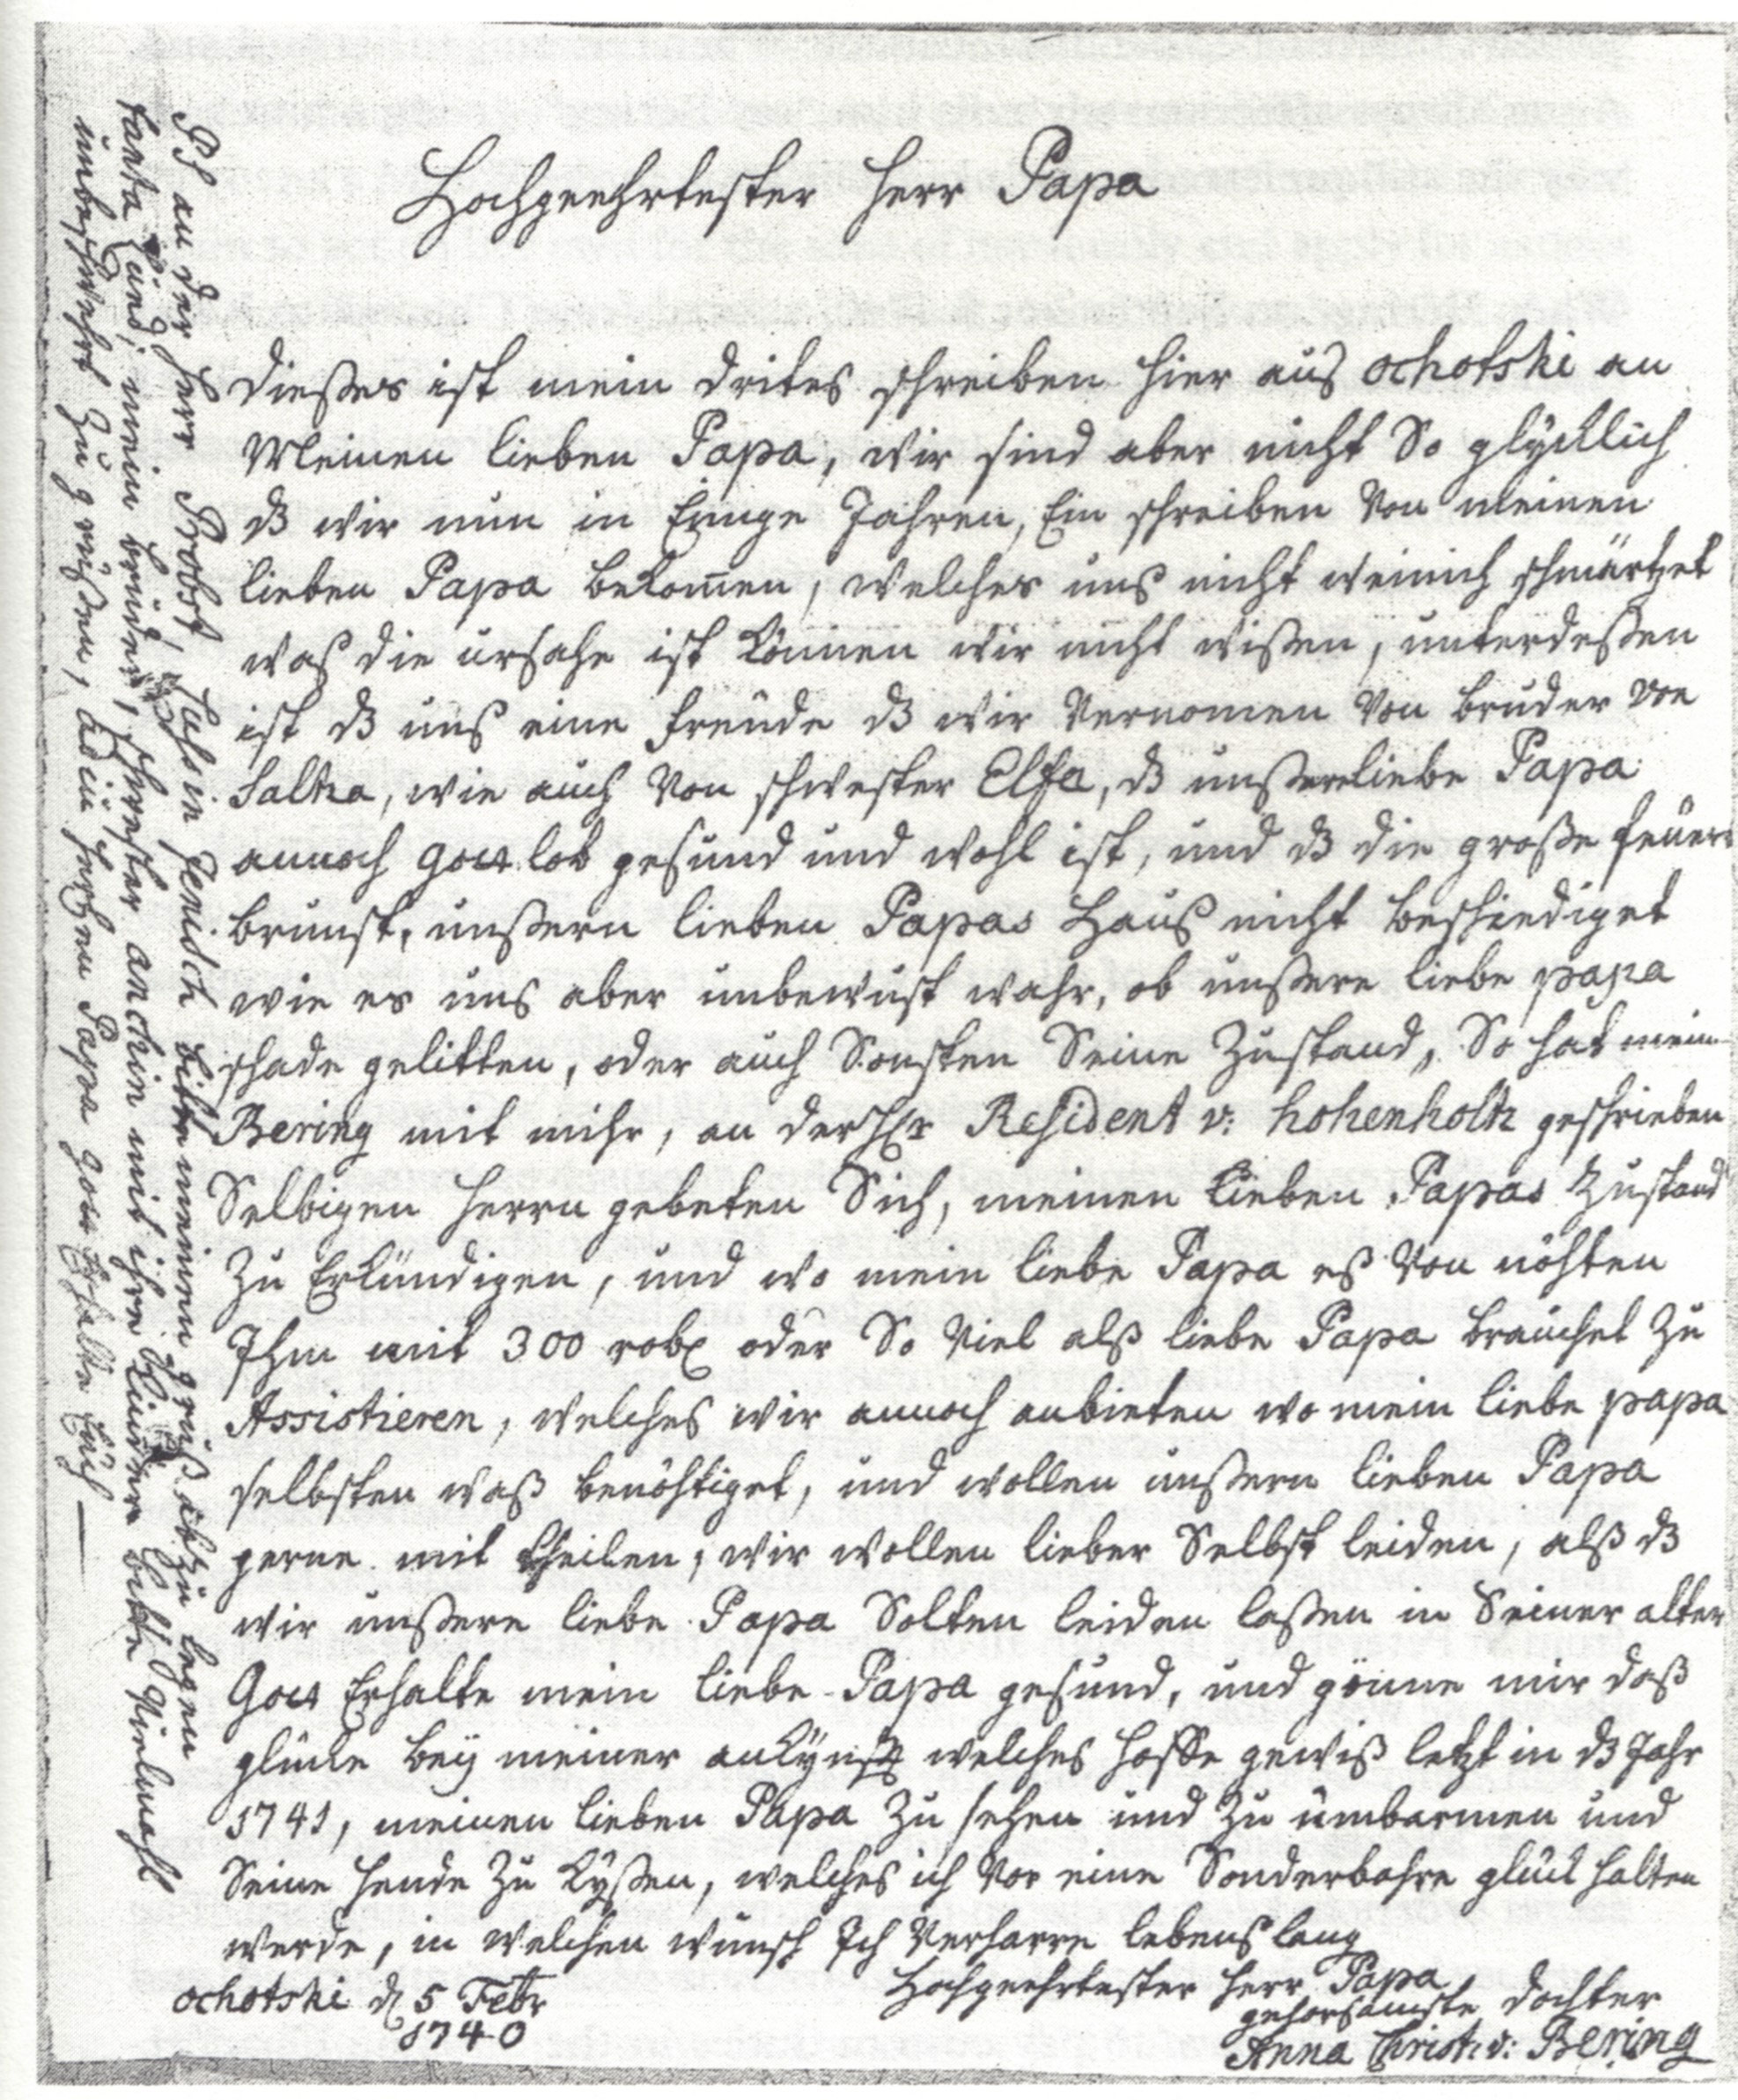 Hochgeehrtester Herr Papa
Dießes ist mein drites schreiben hier auß ochotski an
Meinen lieben Papa, wir sind aber nicht So glycklich
dß wir nun in Einige Jahren, Ein schreiben von meinen
lieben Papa bekomen, welches unß nicht weinich schmärtzet
waß die ursache ist können wir nicht wißen, unterdeßen
ist dß unß eine freude dß wir vernomen von bruder von
Saltza, wie auch von schwester Elsa, dß unßere liebe Papa
annoch gott lob gesund und wohl ist, und dß die große feuers
brunst, unßern lieben Papas Hauß nicht beschediget
wie es unß aber unbewust wahr, ob unßere liebe papa
schade gelitten, oder auch Sonsten Seine Zustand, So hat mein
Bering mit mihr, an der Hr Resident v: hohenholtz geschrieben
Selbigen Herrn gebeten Sich, meinen lieben Papas Zustand
Zu Erkundigen, und wo mein liebe Papa eß von nöhten
Ihm mit 300 rob oder So viel alß liebe Papa brauchet Zu
Assistieren, welches wir annoch anbieten wo mein liebe papa
selbsten waß benöhtiget, und wollen unßern lieben Papa
gerne mit theilen, wir wollen lieber Selbst leiden, alß dß
wir unßere liebe Papa Solten leiden laßen in Seiner alter
Gott Erhalte mein liebe Papa gesund, und gönne mir daß
glücke beÿ meiner ankunft welches hoffe gewiß letzt in dß Jahr
1741, meinen lieben Papa Zu sehen und Zu umbarmen und
Seine hende Zu kyßen, welches ich vor eine Sonderbahre glück halten
werde, in welchen wunsch Ich verharre lebenß lang
Hochgeehrtester Herr Papa
gehorsamste dochter
Anna Christ: v: Bering
ochotski d 5 Febr
1740
PS an der Herr Probst, bitte meinen gruß abzu legen
Tanta und mein bruder, schwester anchin mit ihre kinder bitte vielmahl
unbeschwehrt Zu grüßen, adiu hertzen Papa Gott Erhalte Euch